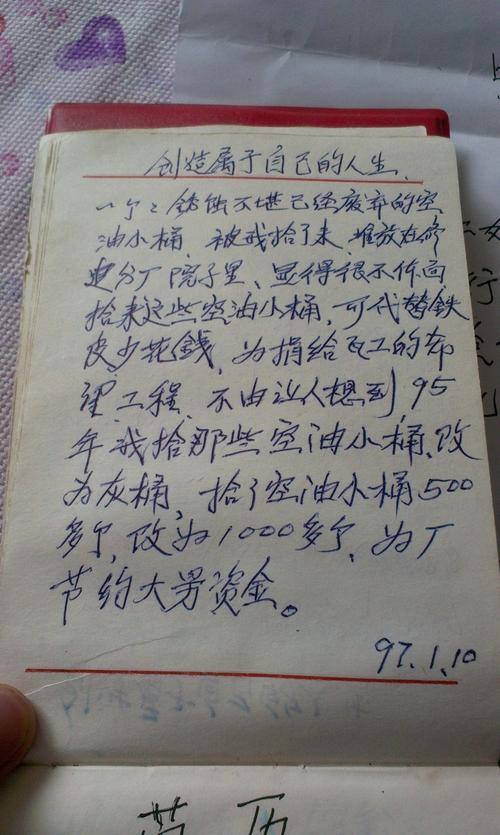 创造属于自己的人生.
一个个锈蚀不堪已经废弃的空
油小桶,被我拾了来,堆放在修
造分厂院子里、显得很不
拾来这些空油小桶,可代替铁
皮少花錢,为捐给瓦工的
理工程,不由让人想到,95
年我拾那些空油小桶、改
为灰桶,拾了空油小桶500
多个,改为1000多个,为厂
节约大男资金。
97.1.10
简历